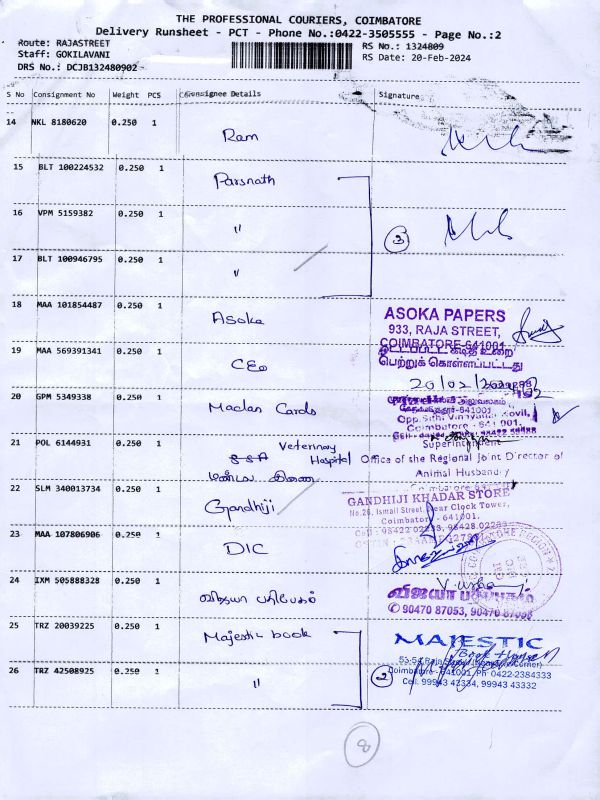 THE PROFESSIONAL COURIERS, COIMBATORE
Delivery Runsheet - PCT - Phone No.:0422-3505555 - Page No.:2
Route: RAJASTREET
RS No.: 1324809
Staff: GOKILAVANI
RS Date: 20-Feb-2024
DRS No.: DCJB132480902
S No Consignment No Weight PCS Consignee Details Signature
14 NKL 8180620 0.250 1 Ram
15 BLT 100224532 0.250 1 Parsnath
16 VPM 5159382 0.250 1 "
3
17 BLT 100946795 0.250 1 "
18 MAA 101854487 0.250 1 Asoka
ASOKA PAPERS
933, RAJA STREET,
COIMBATORE-641001
19 MAA 569391341 0.250 1 CEO
பெற்றுக் கொள்ளப்பட்டது
20/02/
20 GPM 5349338 0.250 1 Madan Cards
Coimbatore - 641 001
21 POL 6144931 0.250 1 Veterinary
Hospital
Superintendent
Office of the Regional Joint Director of
Animal Husbandry
22 SLM 340013734 0.250 1 Gandhiji
GANDHIJI KHADAR STORE
No.26, Ismail Street, Near Clock Tower,
Coimbatore - 641001.
23 MAA 107806906 0.250 1 DIC
24 IXM 505888328 0.250 1
விஜயா பதிப்பகம்
90470 87053, 90470 87058
25 TRZ 20039225 0.250 1 Majestic book
MAJESTIC
Book House
Coimbatore - 641001 Ph 0422-2384333
Cell: 99943 42334, 99943 43332
26 TRZ 42508925 0.250 1 "
2
8